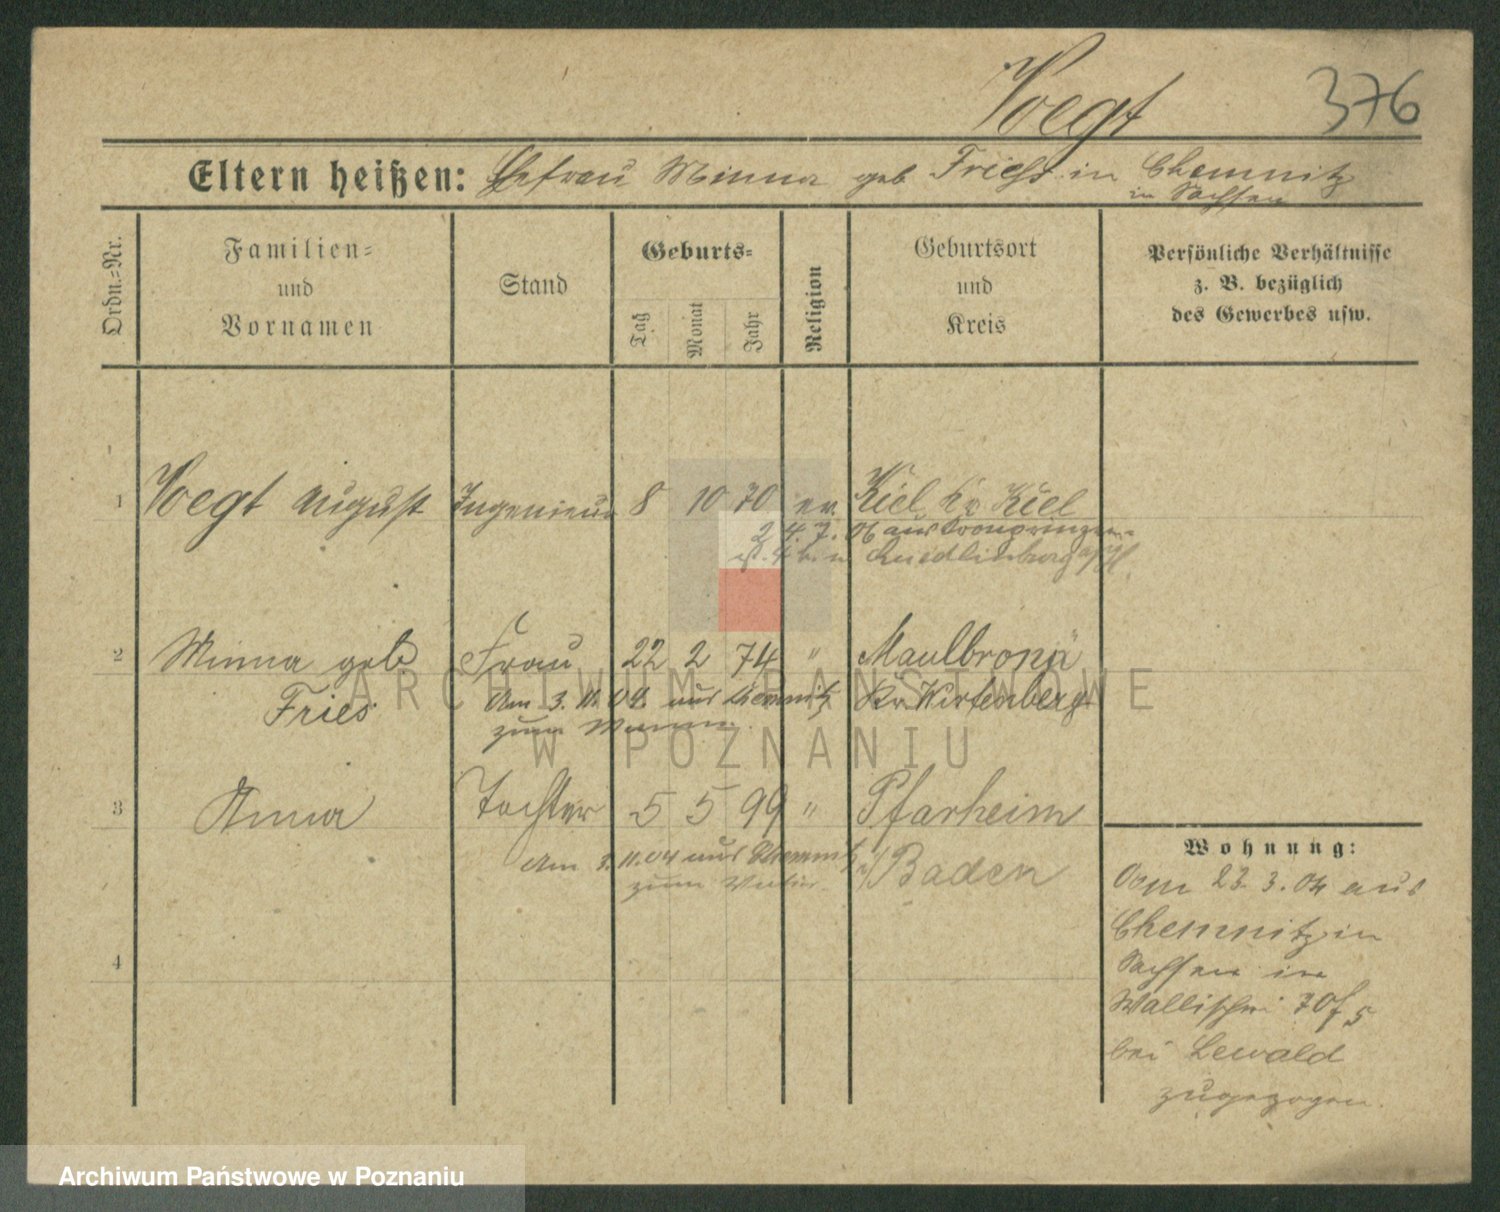 Voegt 376
Eltern heißen: Ehefrau Minna geb Fries in Chemnitz
in Sachsen
Ordn.-Nr.
Familien-
und
Vornamen
Stand
Geburts-
Tag Monat Jahr
Religion
Geburtsort
und
Kreis
Persönliche Verhältnisse
z. B. bezüglich
des Gewerbes usw.
1 Voegt August Ingenieur 8 10 70 ev. Kiel Kr Kiel
24.7.06 aus Kronprinzen-
Quedlinburg
2 Minna geb Frau 22 2 74 " Maulbronn
Fries Am 3. 11. 04. aus Chemnitz Kr Wirtenberg
zum Manne.
3 Anna Tochter 5 5 99 " Pfarheim
Am 3. 11. 04 aus Chemnitz i/Baden
zum Vater.
4
Wohnung:
Vom 23. 3. 04 aus
Chemnitz in
Sachsen in
Wallischei 70f5
bei Lewald
zugezogen.
ARCHIWUM PAŃSTWOWE
W POZNANIU
Archiwum Państwowe w Poznaniu